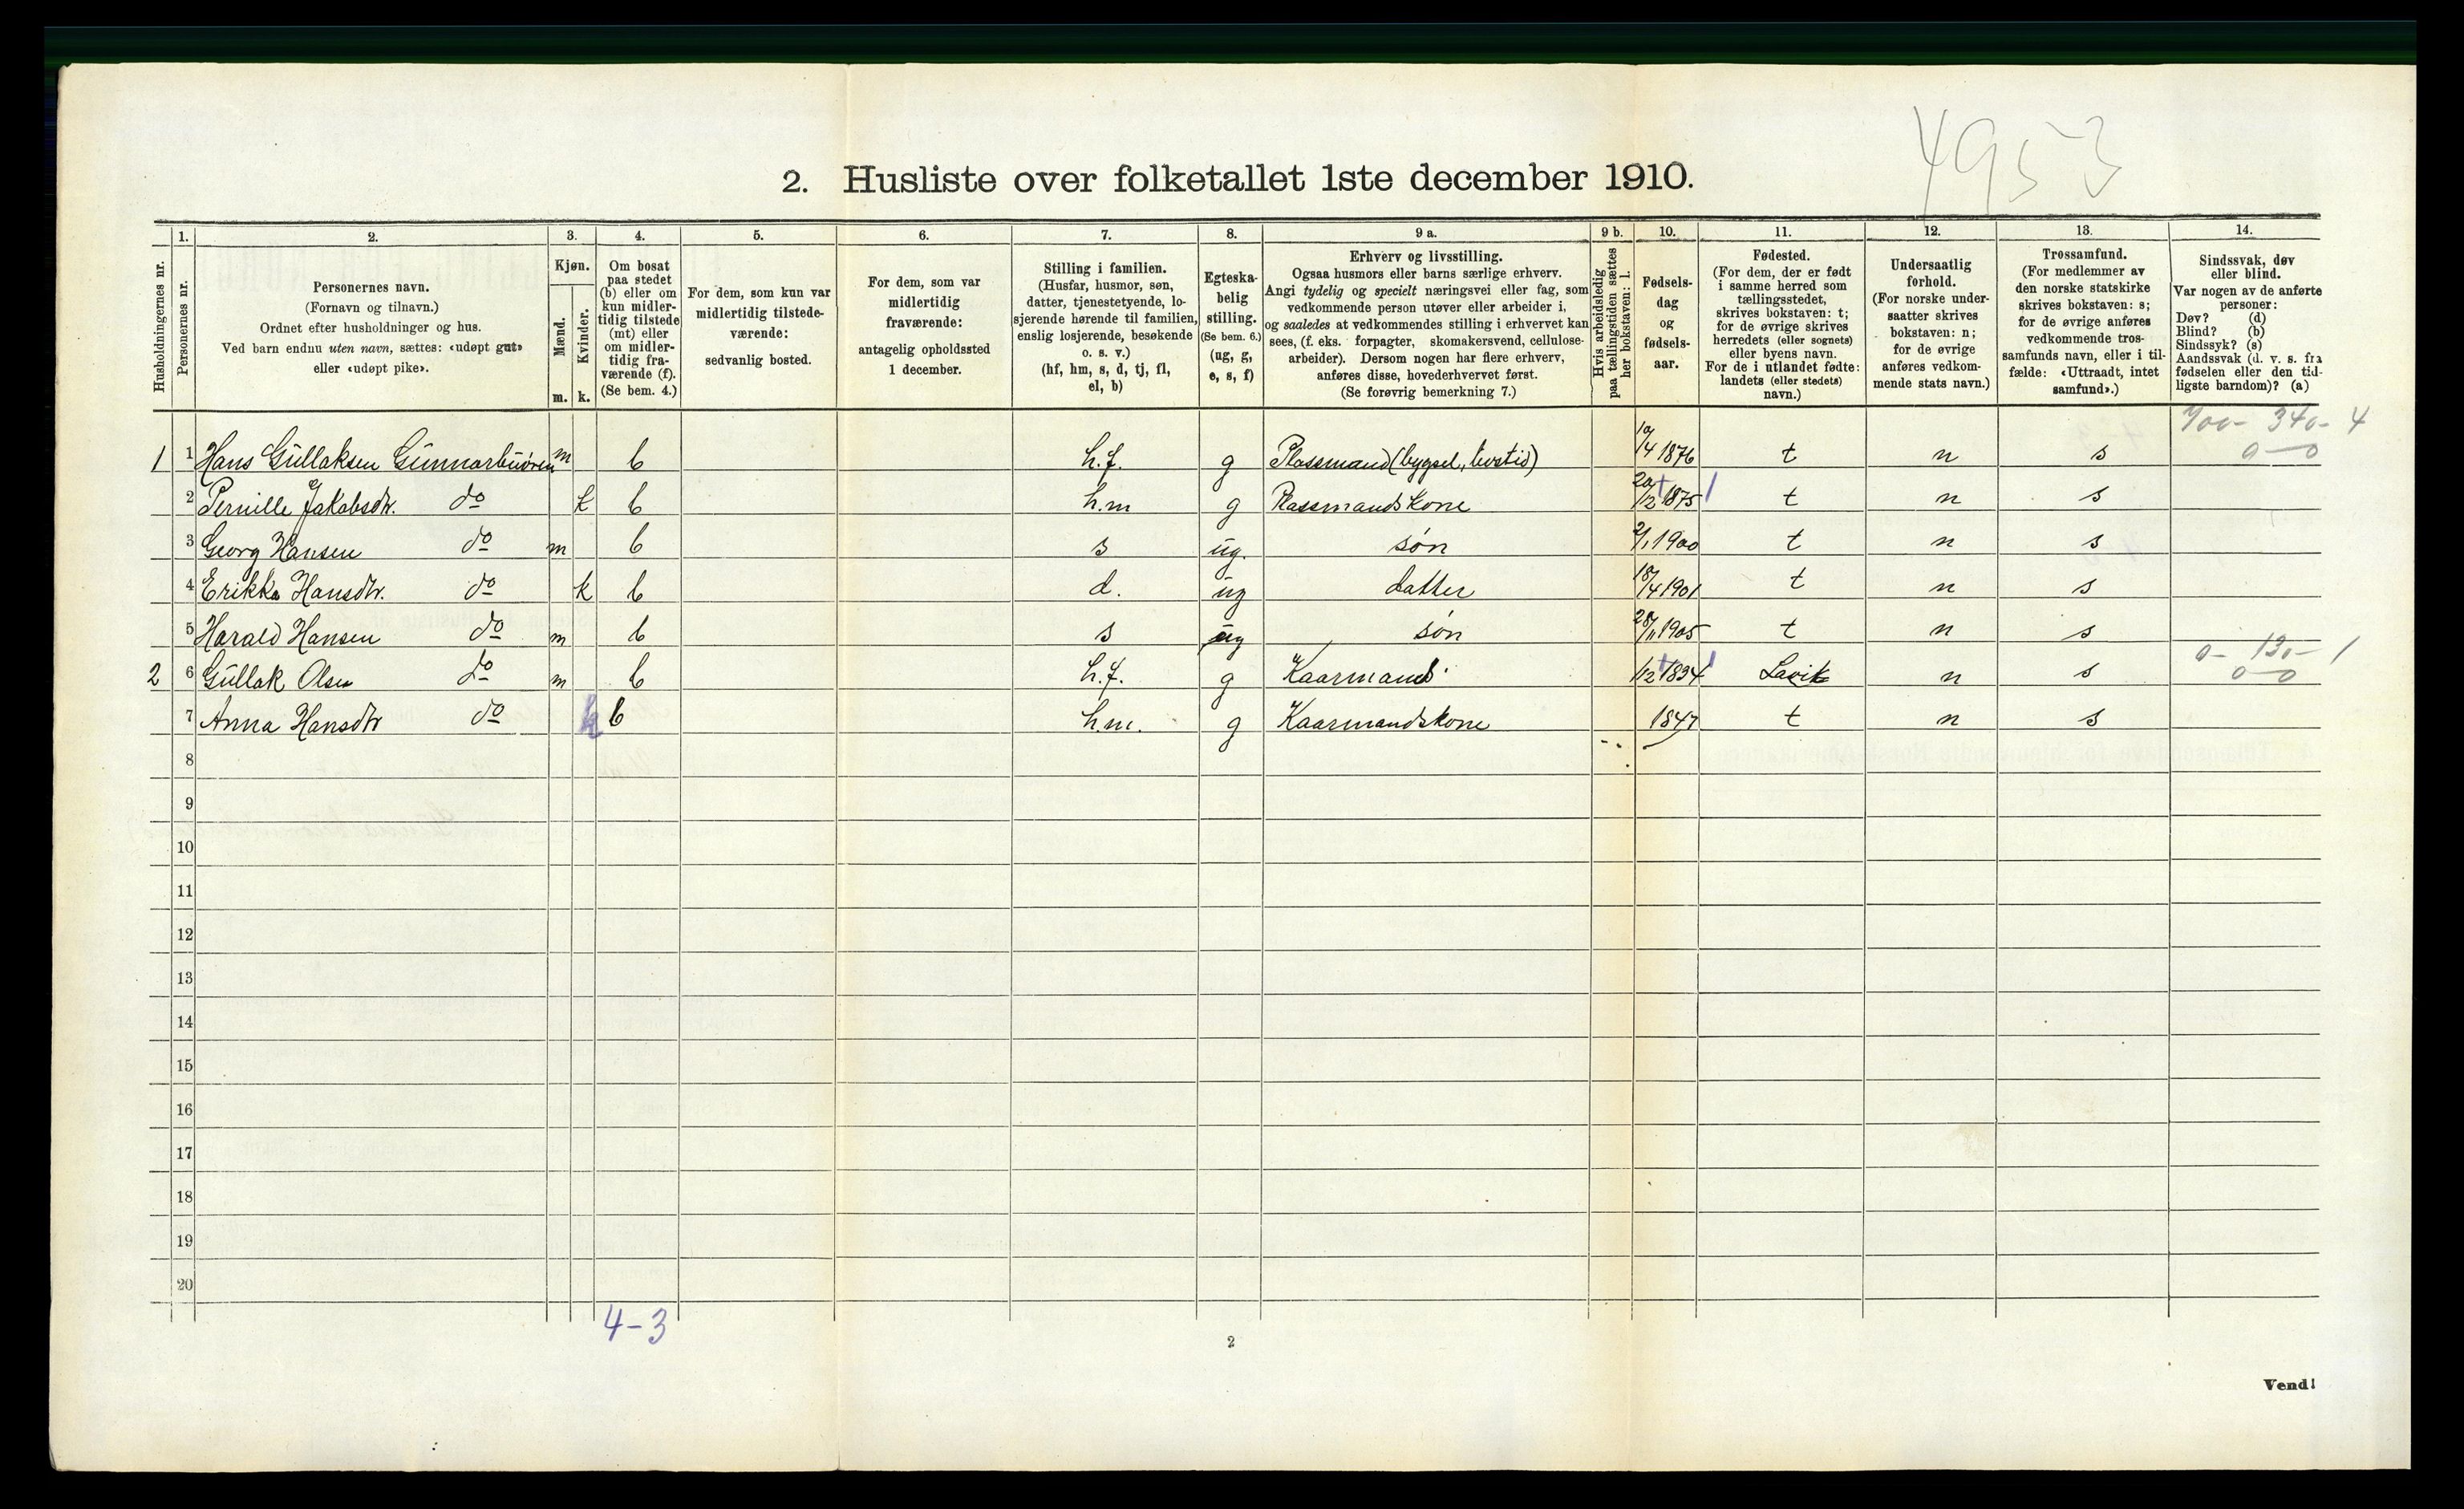 4953
2. Husliste over folketallet 1ste december 1910.
Husholdningernes nr.
1.
Personernes nr.
2.
Personernes navn.
(Fornavn og tilnavn.)
Ordnet efter husholdninger og hus.
Ved barn endnu uten navn, sættes: «udøpt gut»
eller «udøpt pike».
3.
Kjøn.
Mænd.
Kvinder.
m. k.
4.
Om bosat
paa stedet
(b) eller om
kun midler-
tidig tilstede
(mt) eller
om midler-
tidig fra-
værende (f).
(Se bem. 4.)
5.
For dem, som kun var
midlertidig tilstede-
værende:
sedvanlig bosted.
6.
For dem, som var
midlertidig
fraværende:
antagelig opholdssted
1 december.
7.
Stilling i familien.
(Husfar, husmor, søn,
datter, tjenestetyende, lo-
sjerende hørende til familien,
enslig losjerende, besøkende
o. s. v.)
(hf, hm, s, d, tj, fl,
el, b)
8.
Egteska-
belig
stilling.
(Se bem. 6.)
(ug, g,
e, s, f)
9 a.
Erhverv og livsstilling.
Ogsaa husmors eller barns særlige erhverv.
Angi tydelig og specielt næringsvei eller fag, som
vedkommende person utøver eller arbeider i,
og saaledes at vedkommendes stilling i erhvervet kan
sees, (f. eks. forpagter, skomakersvend, cellulose-
arbeider). Dersom nogen har flere erhverv,
anføres disse, hovederhvervet først.
(Se forøvrig bemerkning 7.)
9 b.
Hvis arbeidsledig
paa tællingstiden sættes
her bokstaven: l.
10.
Fødsels-
dag
og
fødsels-
aar.
11.
Fødested.
(For dem, der er født
i samme herred som
tællingsstedet,
skrives bokstaven: t;
for de øvrige skrives
herredets (eller sognets)
eller byens navn.
For de i utlandet fødte:
landets (eller stedets)
navn.)
12.
Undersaatlig
forhold.
(For norske under-
saatter skrives
bokstaven: n;
for de øvrige
anføres vedkom-
mende stats navn.)
13.
Trossamfund.
(For medlemmer av
den norske statskirke
skrives bokstaven: s;
for de øvrige anføres
vedkommende tros-
samfunds navn, eller i til-
fælde: «Uttraadt, intet
samfund».)
14.
Sindssvak, døv
eller blind.
Var nogen av de anførte
personer:
Døv? (d)
Blind? (b)
Sindssyk? (s)
Aandssvak (d. v. s. fra
fødselen eller den tid-
ligste barndom)? (a)
700- 340- 4
0-0
1 1 Hans Gullaksen Gunnarbuören m b h.f. g Plassmand (bygsel, livstid) 10/4 1876 t n s
2 Pernille Jakobsdtr. do k b h.m g Plassmandskone 20/12 1875 t n s
3 Georg Hansen do m b s ug. søn 2/1 1900 t n s
4 Erikka Hansdtr. do k b d. ug datter 18/4 1901 t n s
5 Harald Hansen do m b s ug søn 28/11 1905 t n s
0- 130- 1
0-0
2 6 Gullak Olsen do m b h.f. g Kaarmand 1/2 1834 Lavik n s
7 Anna Hansdtr do k b h.m. g Kaarmandskone 1847 t n s
8
9
10
11
12
13
14
15
16
17
18
19
20
4-3
2
Vend!